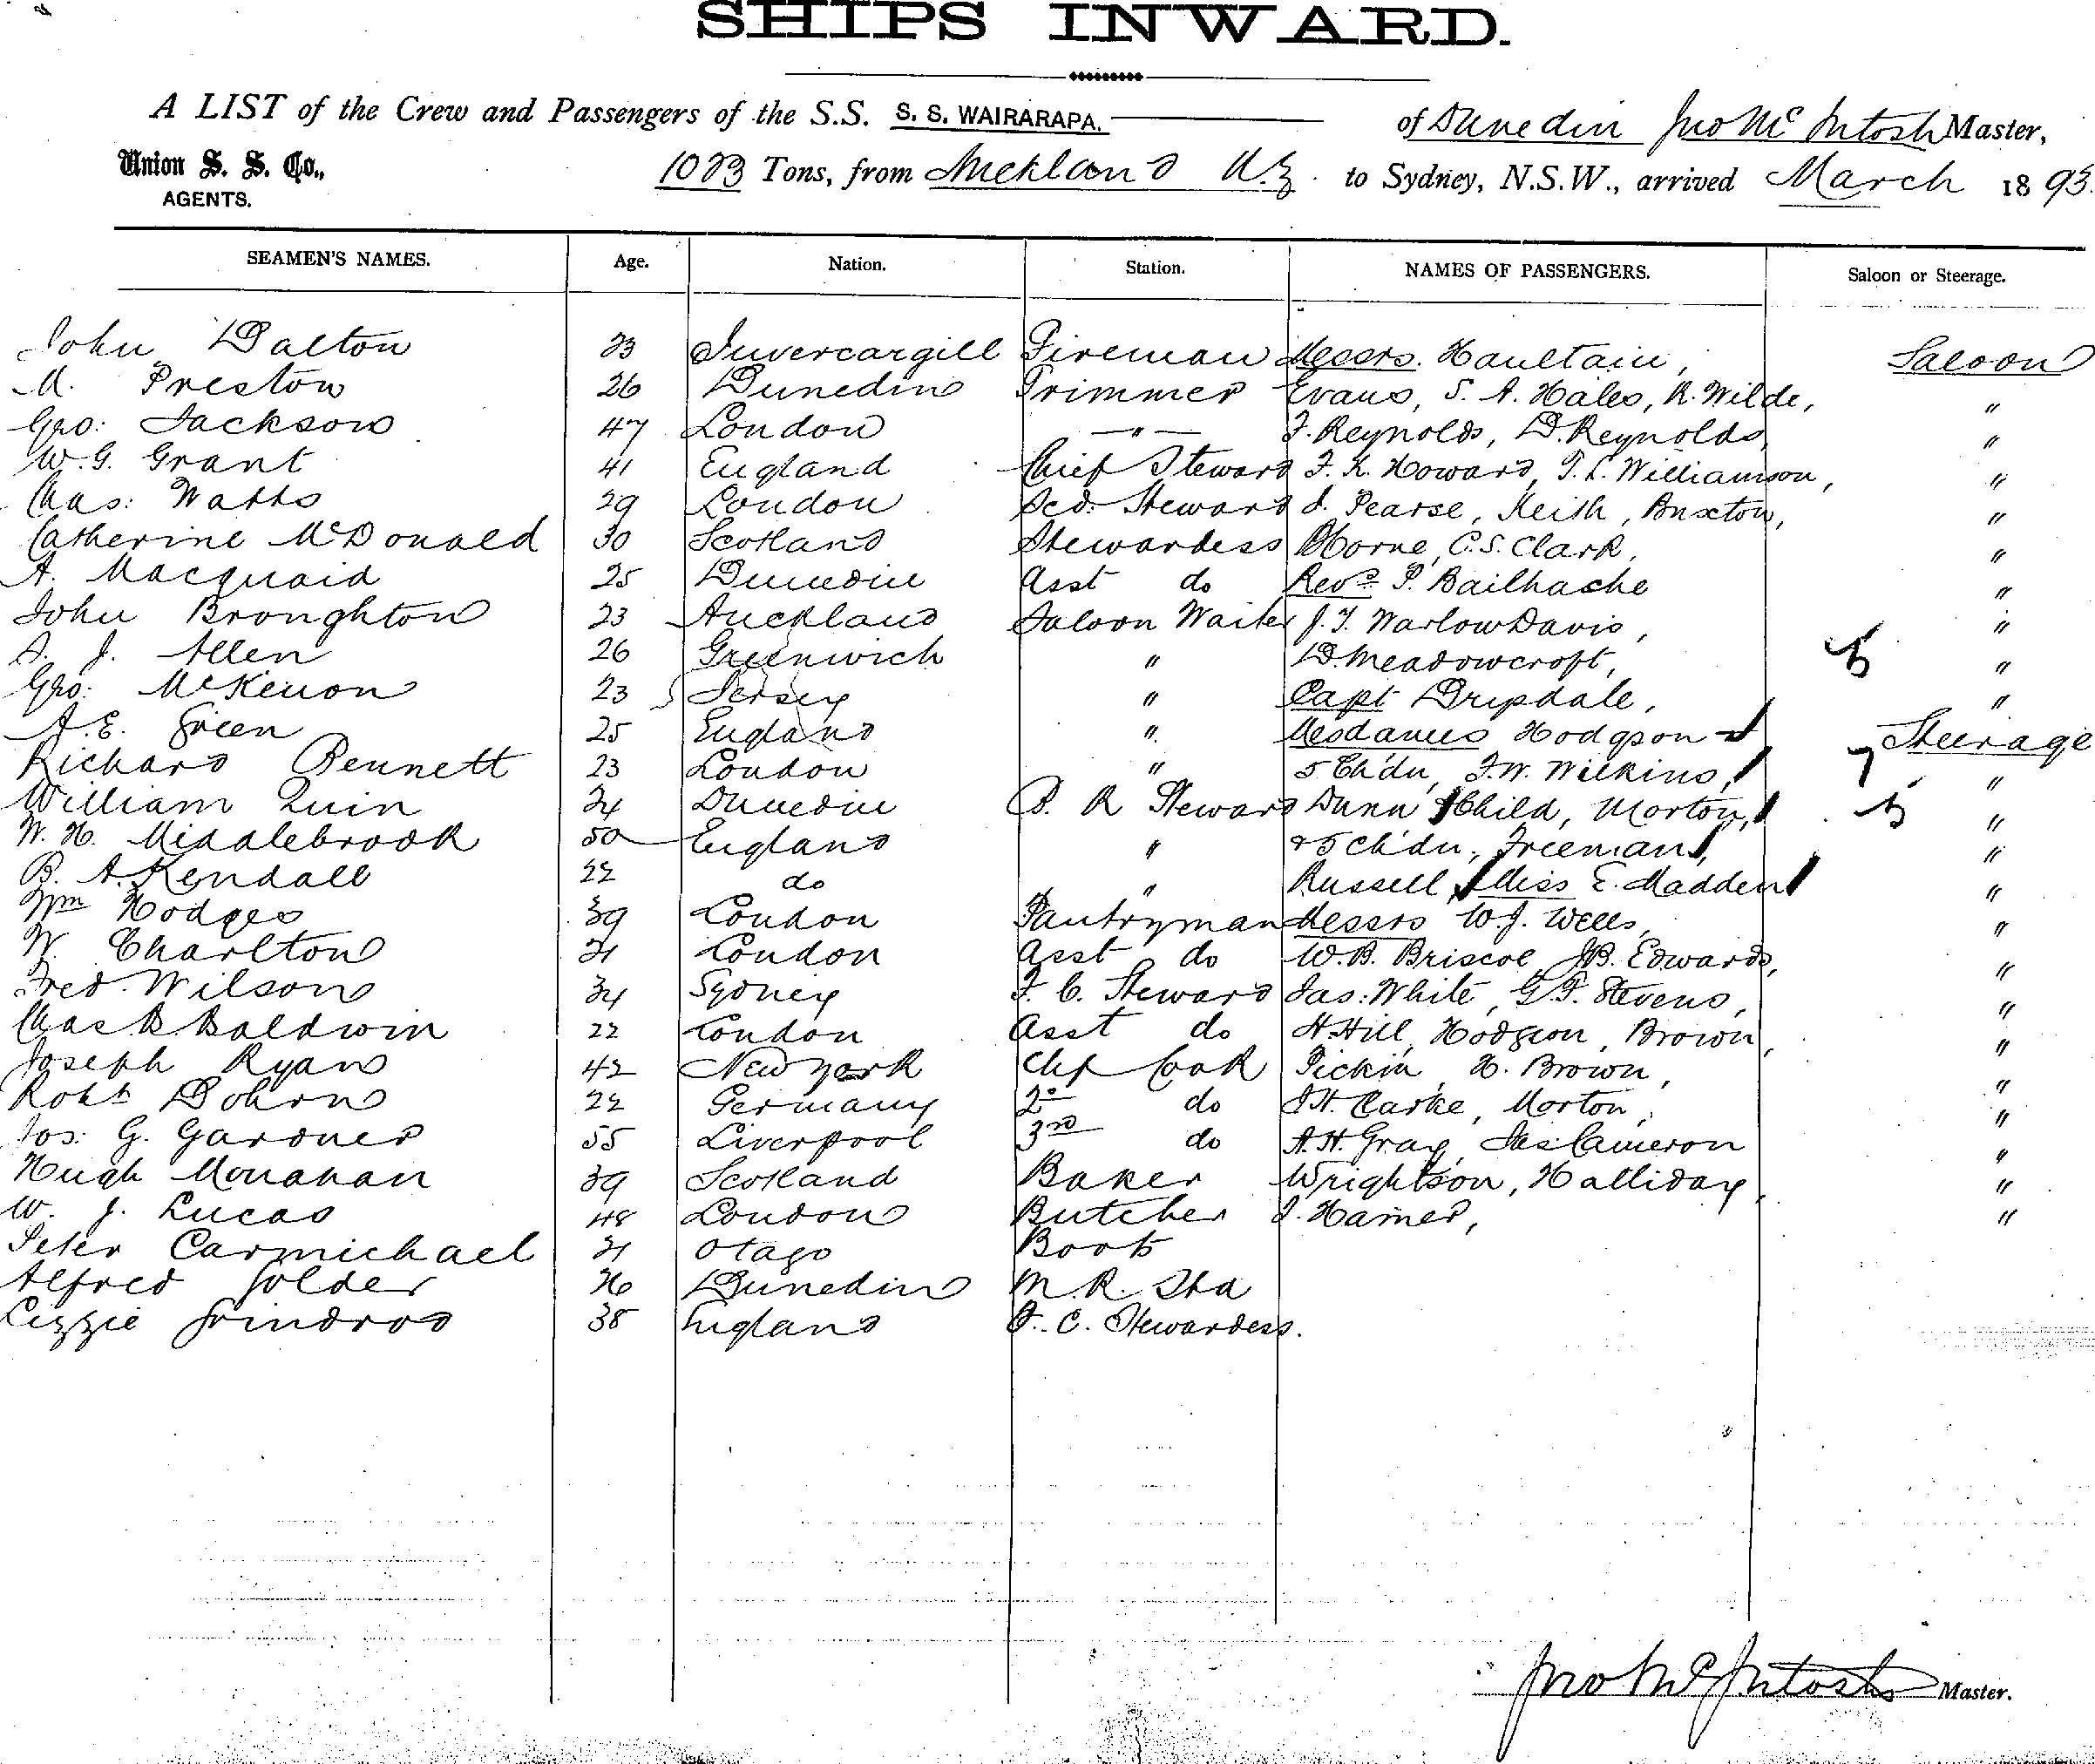 SHIPS INWARD.
A LIST of the Crew and Passengers of the S.S. S. S. WAIRARAPA. of Dunedin Jno McIntosh Master,
Union S. S. Co., AGENTS.
1083 Tons, from Auckland N.Z. to Sydney, N.S.W., arrived March 1893.
SEAMEN'S NAMES. Age. Nation. Station. NAMES OF PASSENGERS. Saloon or Steerage.
John Dalton 23 Invercargill Fireman Messrs. Haultain, Saloon
M. Preston 26 Dunedin Trimmer Evans, S. A. Hales, R. Wilde, "
Geo: Jackson 47 London —"— F. Reynolds, D. Reynolds, "
W. G. Grant 41 England Chief Steward F. K. Howard, T. L. Williamson, "
Chas: Watts 29 London Scd. Steward J. Pearse, Keith, Buxton, "
Catherine McDonald 30 Scotland Stewardess Horne, C. S. Clark, "
A. Macquaid 25 Dunedin Asst do Revd P. Bailhache "
John Broughton 23 Auckland Saloon Waiter J. T. Warlow Davis, "
A. J. Allen 26 Greenwich " D. Meadowcroft, "
Geo: McKenon 23 Jersey " Capt Dripdale, "
A. E. Green 25 England " Mesdames Hodgson & Steerage
Richard Bennett 23 London " 5 Ch'dn, F. W. Wilkins, "
William Quin 24 Dunedin B. R Steward Dunn & Child, Morton, "
W. H. Middlebrook 50 England " & 5 Ch'dn, Freeman, "
B. A. Kendall 22 do " Russell, Miss E. Madden "
Wm Hodges 39 London Pantryman Messrs W. J. Wells, "
W. Charlton 21 London Asst do W. B. Briscoe, J B. Edwards, "
Fred. Wilson 34 Sydney F. C. Steward Jas: White, G. F. Stevens, "
Chas B. Baldwin 22 London Asst do H. Hill, Hodgson, Brown, "
Joseph Ryan 42 New York Chf Cook Pickin, H. Brown, "
Robt Dohrn 22 Germany 2d do J H. Carke, Morton, "
Jos: G. Gardner 55 Liverpool 3rd do A. H. Gray, Jas Cameron "
Hugh Monahan 39 Scotland Baker Wrightson, Halliday, "
W. J. Lucas 48 London Butcher J. Hamer, "
Peter Carmichael 21 Otago Boots
Alfred Golder 26 Dunedin M. R. Std
Lizzie Grindrod 38 England F. C. Stewardess.
Jno McIntosh Master.